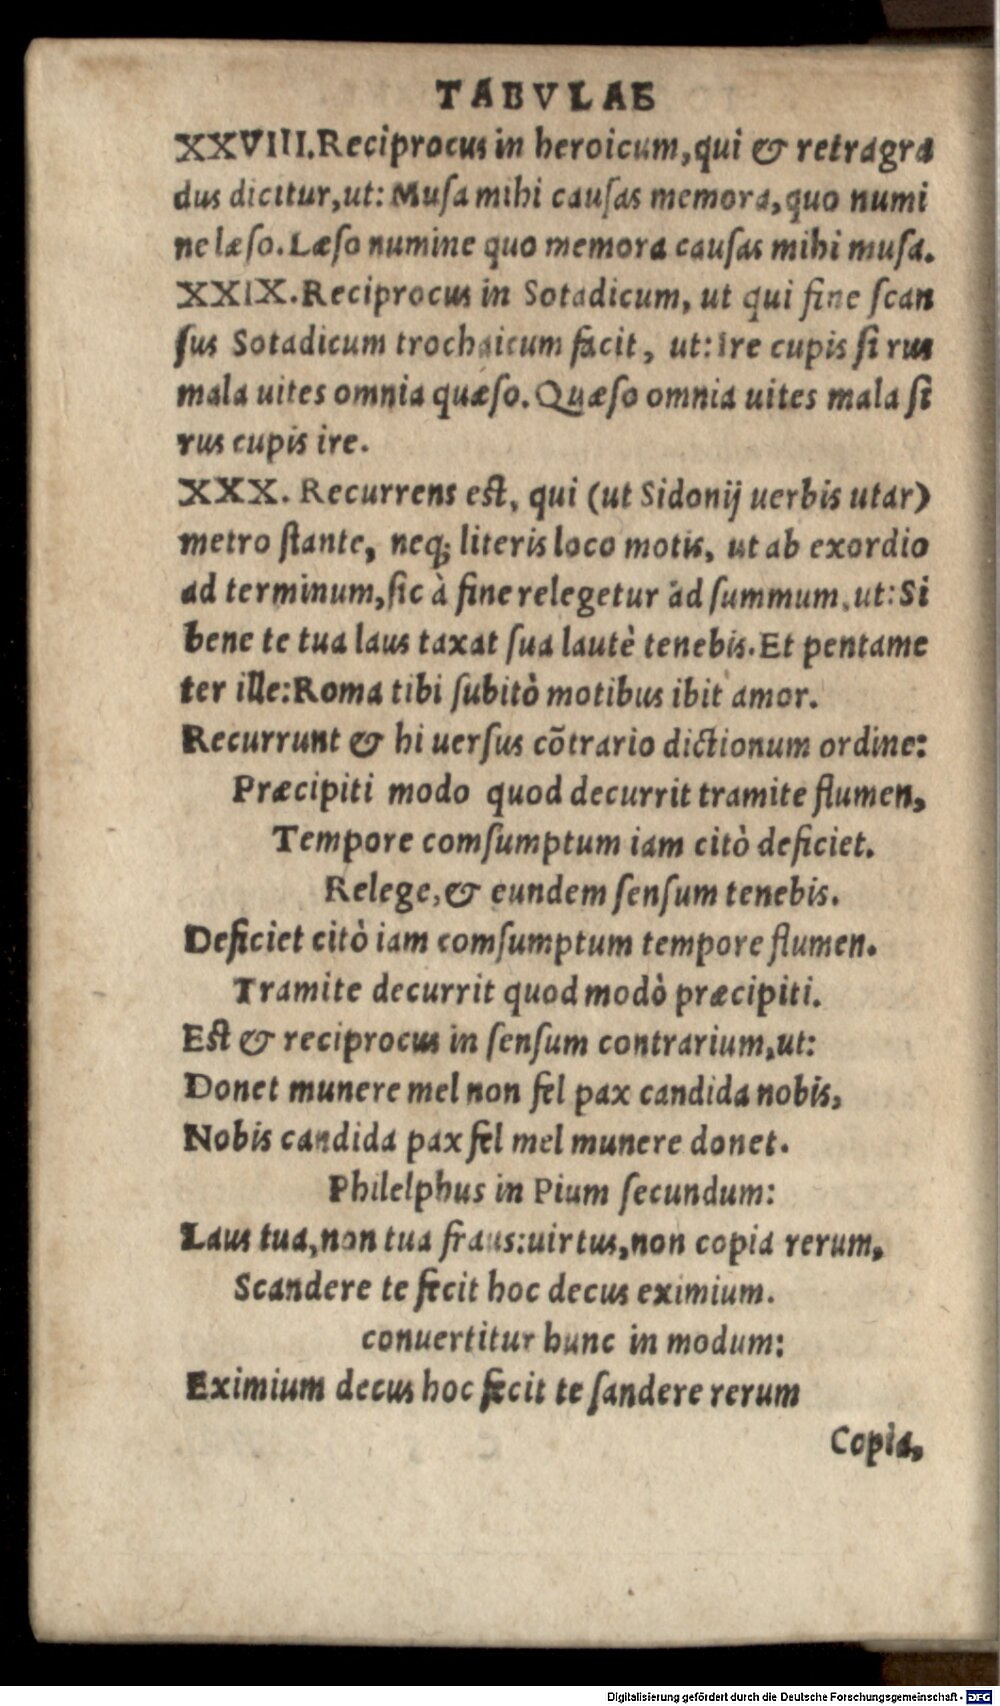 TABVLAE
XXVIII. Reciprocus in heroicum, qui & retragra
dus dicitur, ut: Musa mihi causas memora, quo numi
ne læso. Læso numine quo memora causas mihi musa.
XXIX. Reciprocus in Sotadicum, ut qui fine scan
sus Sotadicum trochaicum facit, ut: Ire cupis si rus
mala uites omnia quæso. Quæso omnia uites mala si
rus cupis ire.
XXX. Recurrens est, qui (ut Sidonij uerbis utar)
metro stante, neq; literis loco motis, ut ab exordio
ad terminum, sic à fine relegetur ad summum, ut: Si
bene te tua laus taxat sua lautè tenebis. Et pentame
ter ille: Roma tibi subitò motibus ibit amor.
Recurrunt & hi uersus cõtrario dictionum ordine:
Præcipiti modo quod decurrit tramite flumen,
Tempore comsumptum iam citò deficiet.
Relege, & eundem sensum tenebis.
Deficiet citò iam comsumptum tempore flumen.
Tramite decurrit quod modò præcipiti.
Est & reciprocus in sensum contrarium, ut:
Donet munere mel non fel pax candida nobis,
Nobis candida pax fel mel munere donet.
Philelphus in Pium secundum:
Laus tua, non tua fraus: uirtus, non copia rerum,
Scandere te fecit hoc decus eximium.
conuertitur hunc in modum:
Eximium decus hoc fecit te sandere rerum
Copia,
Digitalisierung gefördert durch die Deutsche Forschungsgemeinschaft - DFG